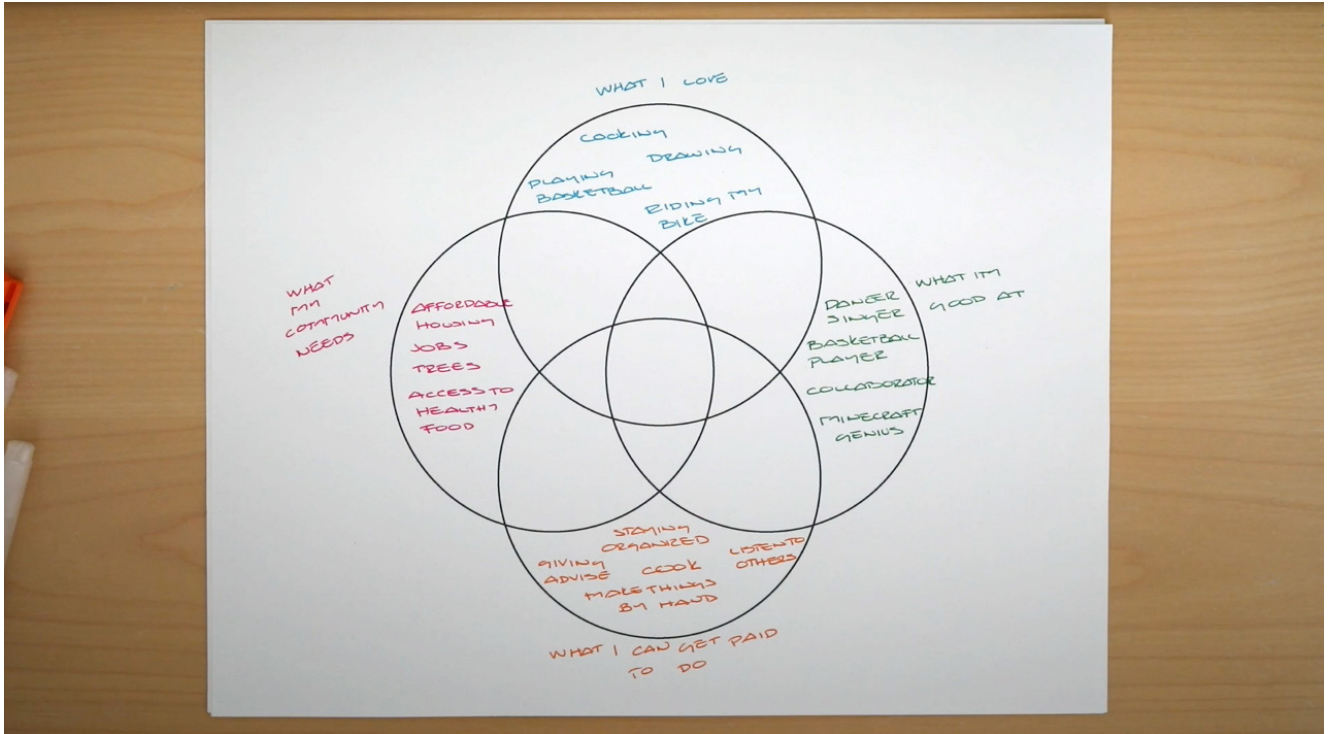 WHAT I LOVE
COOKING
DRAWING
PLAYING
BASKETBALL
RIDING MY
BIKE
WHAT
MY
COMMUNITY
NEEDS
AFFORDABLE
HOUSING
JOBS
TREES
ACCESS TO
HEALTHY
FOOD
WHAT I'M
GOOD AT
DANCER
SINGER
BASKETBALL
PLAYER
COLLABORATOR
MINECRAFT
GENIUS
STAYING
ORGANIZED
GIVING
ADVISE
COOK
LISTEN TO
OTHERS
MAKE THINGS
BY HAND
WHAT I CAN GET PAID
TO DO